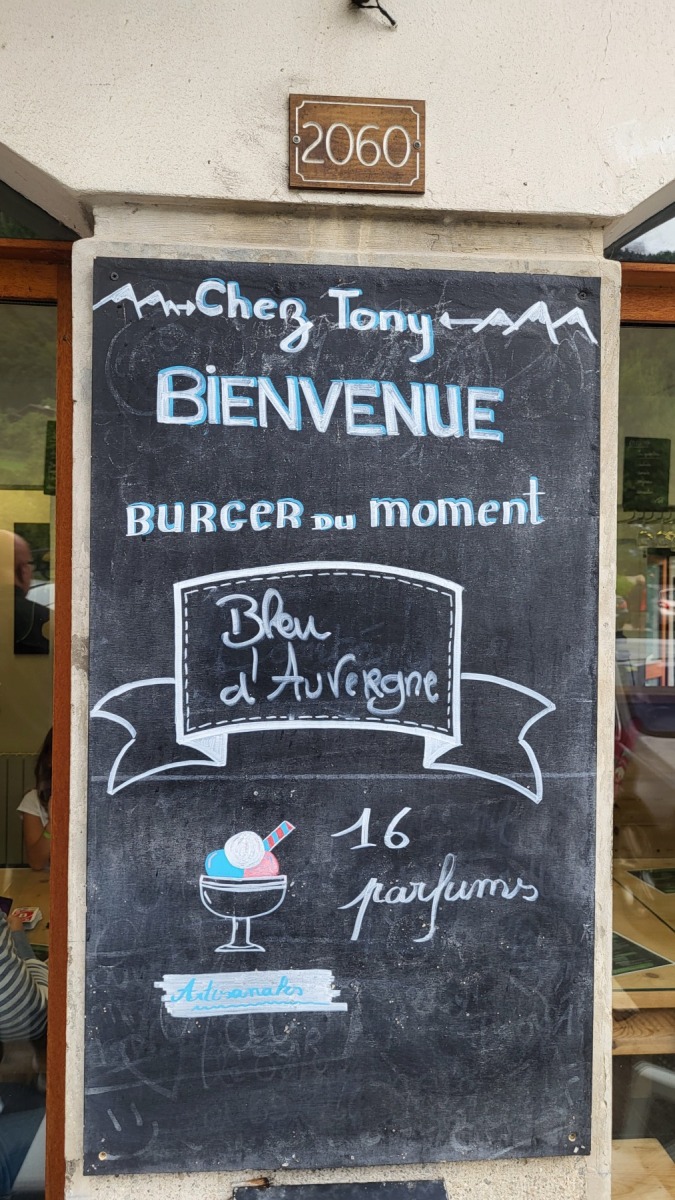 2060
Chez Tony
BIENVENUE
BURGER DU moment
Bleu
d'Auvergne
16
parfums
Artisanales